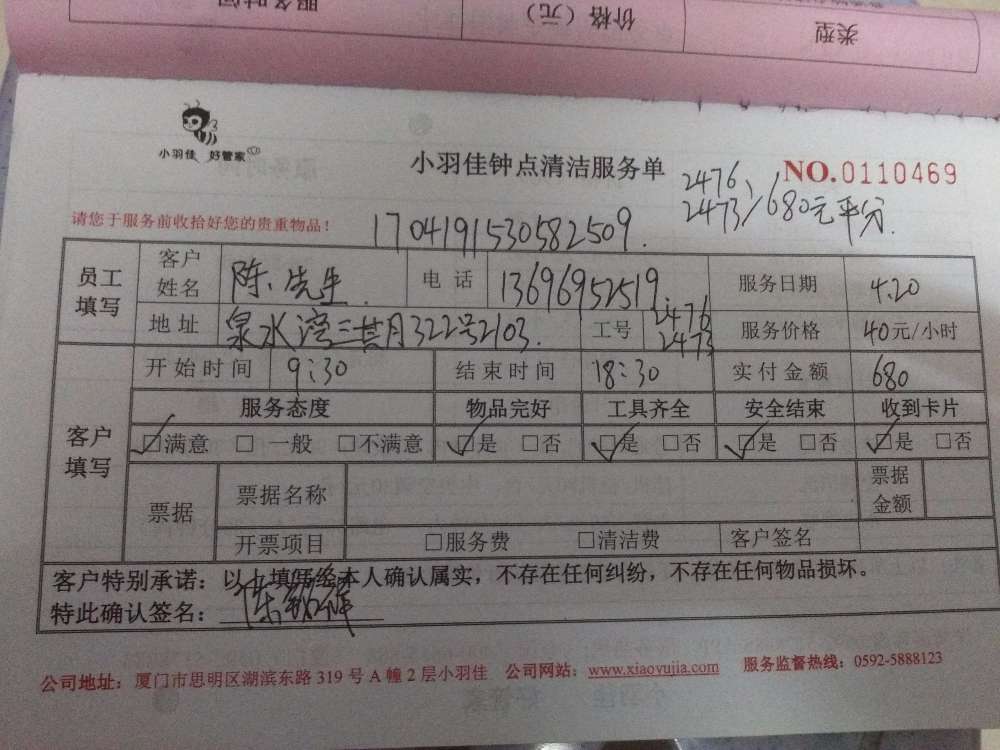 服务时间 价格（元） 类型
小羽佳 好管家
小羽佳钟点清洁服务单
NO.0110469
2476、
2473/680元平分.
请您于服务前收拾好您的贵重物品！
1704191530582509.
员工填写 客户姓名 陈先生. 电话 13696952519. 服务日期 4.20
地址 泉水湾三其月322号2103. 工号 2476 2473 服务价格 40元/小时
客户填写 开始时间 9:30 结束时间 18:30 实付金额 680
服务态度 物品完好 工具齐全 安全结束 收到卡片
☑满意 □一般 □不满意 ☑是 □否 ☑是 □否 ☑是 □否 ☑是 □否
票据 票据名称 票据金额
开票项目 □服务费 □清洁费 客户签名
客户特别承诺：以上填写给本人确认属实，不存在任何纠纷，不存在任何物品损坏。
特此确认签名：
公司地址：厦门市思明区湖滨东路 319 号 A 幢 2 层小羽佳 公司网站：www.xiaoyujia.com 服务监督热线：0592-5888123